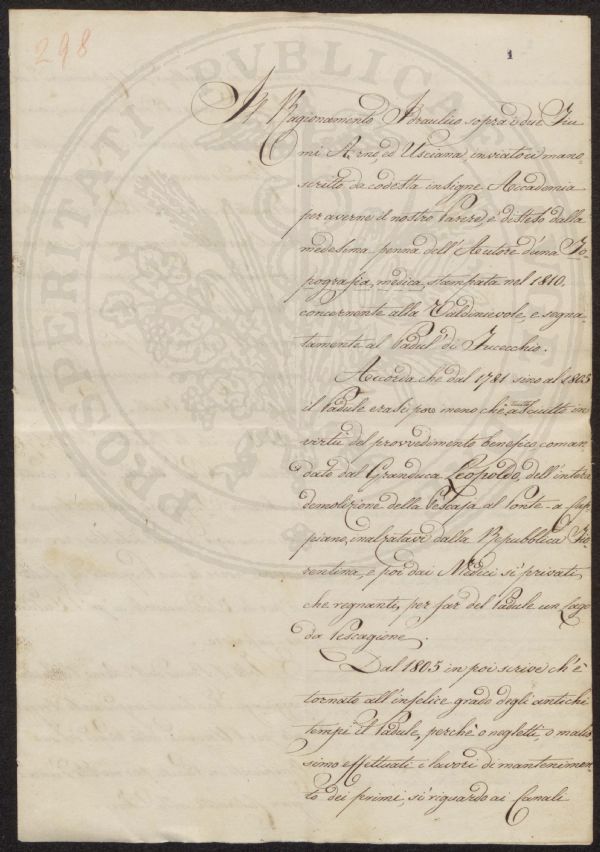 298
1
Il Ragionamento Idraulico sopra i due Fiu=
mi Arno, ed Usciana inviatoci mano=
scritto da codesta insigne Accademia
per averne il nostro Parere, è disteso dalla
medesima penna dell'Autore d'una To=
pografia medica stampata nel 1810.
concernente alla Valdinievole, e segna=
tamente al Padul' di Fucecchio.
Accorda che dal 1781 sino al 1805
il Padule erasi poco meno che asciutto in
virtù del provvedimento benefico coman=
dato dal Granduca Leopoldo, dell'intera
demolizione della Pescaja al Ponte-a Cap=
piano, inalzatavi dalla Repubblica Fio=
rentina, e poi dai Medici sì privati,
che regnanti, per far del Padule un Lago
da Pescagione.
Dal 1805 in poi scrive ch'è
tornato all'infelice grado degli antichi
tempi il Padule, perchè o negletti, o malis=
simo effettuati i lavori di mantenimen=
to dei primi, sì riguardo ai Canali
PUBLICAE
PROSPERITATI